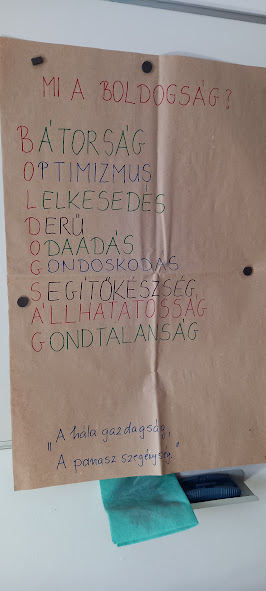 MI A BOLDOGSÁG?
BÁTORSÁG
OPTIMIZMUS
LELKESEDÉS
DERŰ
ODAADÁS
GONDOSKODÁS
SEGÍTŐKÉSZSÉG
ÁLLHATATOSSÁG
GONDTALANSÁG
„A hála gazdagság,
A panasz szegénység."